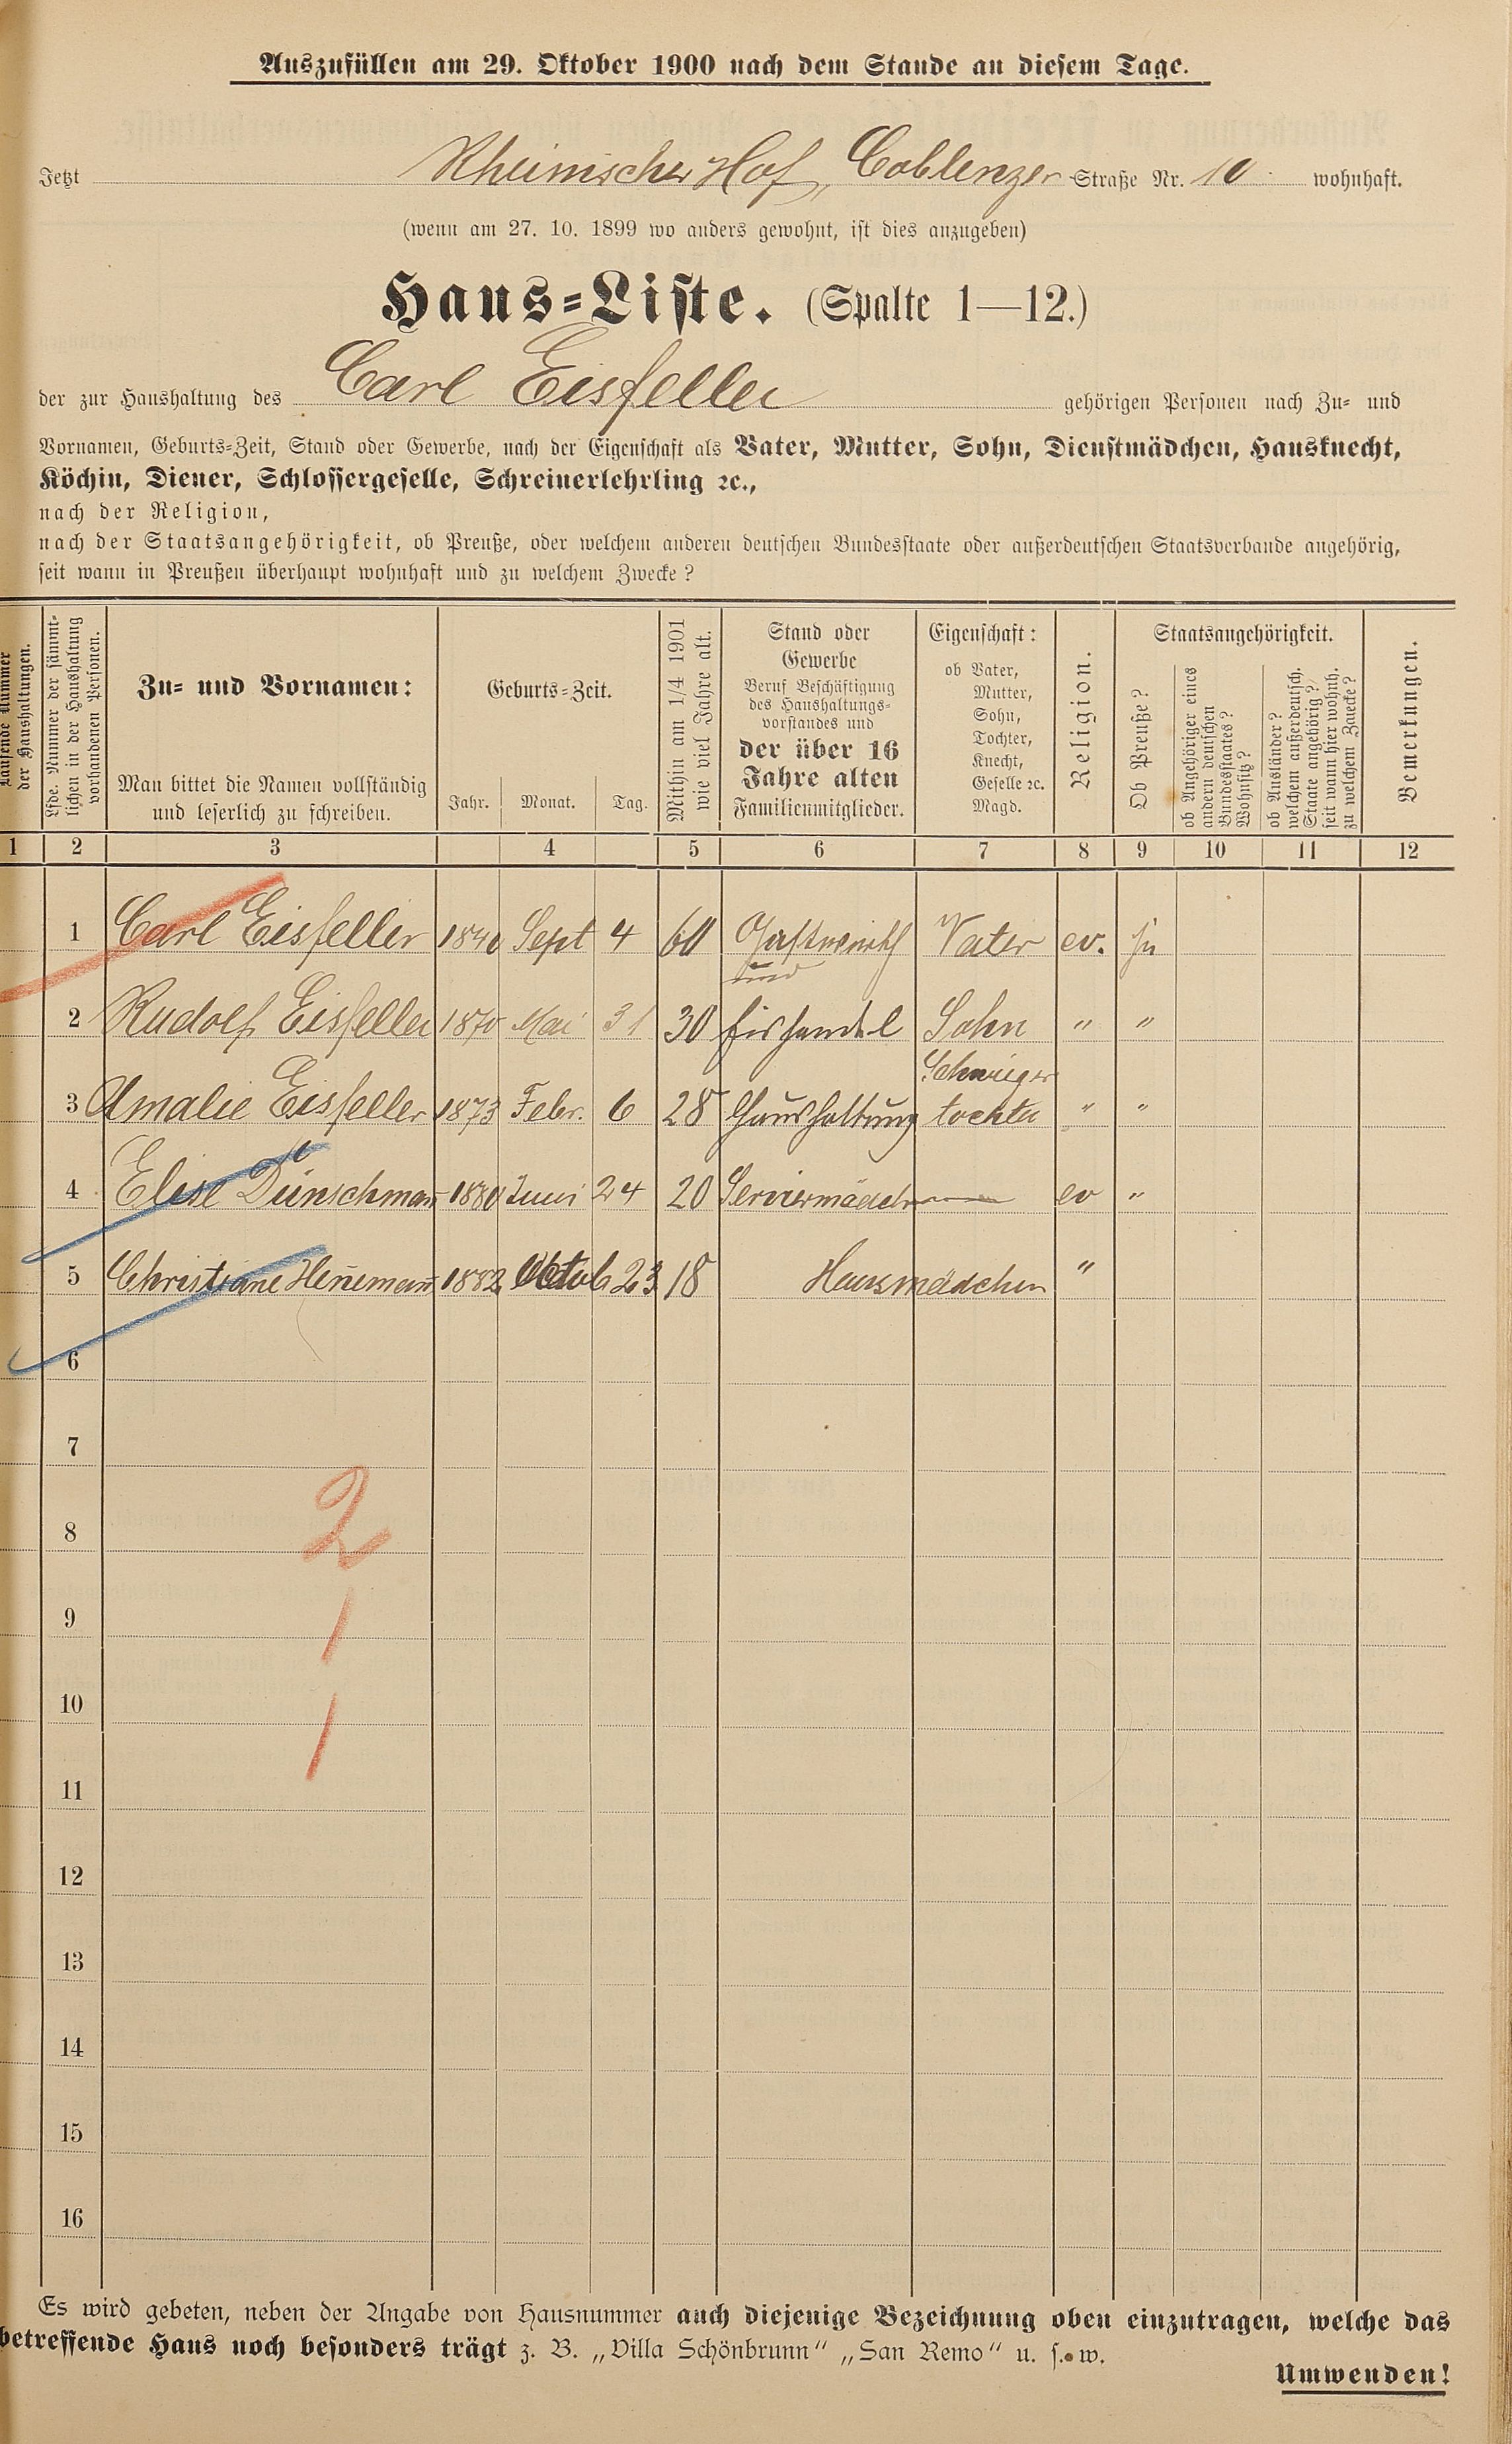 Auszufüllen am 29. Oktober 1900 nach dem Stande an diesem Tage.
Jetzt Rheinischer Hof, Coblenzer Straße Nr. 10 wohnhaft.
(wenn am 27. 10. 1899 wo anders gewohnt, ist dies anzugeben)
Haus-Liste. (Spalte 1—12.)
der zur Haushaltung des Carl Eisfeller gehörigen Personen nach Zu- und
Vornamen, Geburts-Zeit, Stand oder Gewerbe, nach der Eigenschaft als Vater, Mutter, Sohn, Dienstmädchen, Hausknecht,
Köchin, Diener, Schlossergeselle, Schreinerlehrling ꝛc.,
nach der Religion,
nach der Staatsangehörigkeit, ob Preuße, oder welchem anderen deutschen Bundesstaate oder außerdeutschen Staatsverbande angehörig,
seit wann in Preußen überhaupt wohnhaft und zu welchem Zwecke?
Laufende Nummer
der Haushaltungen.
Lfde. Nummer der sämmt-
lichen in der Haushaltung
vorhandenen Personen.
Zu- und Vornamen:
Man bittet die Namen vollständig
und leserlich zu schreiben.
Geburts-Zeit.
Jahr. Monat. Tag.
Mithin am 1/4 1901
wie viel Jahre alt.
Stand oder
Gewerbe
Beruf Beschäftigung
des Haushaltungs-
vorstandes und
der über 16
Jahre alten
Familienmitglieder.
Eigenschaft:
ob Vater,
Mutter,
Sohn,
Tochter,
Knecht,
Geselle ꝛc.
Magd.
Religion.
Staatsangehörigkeit.
Ob Preuße?
ob Angehöriger eines
andern deutschen
Bundesstaates?
Wohnsitz?
ob Ausländer?
welchem außerdeutsch.
Staate angehörig?
seit wann hier wohnh.
zu welchem Zwecke?
Bemerkungen.
1 2 3 4 5 6 7 8 9 10 11 12
1 Carl Eisfeller 1840 Sept 4 60 Gastwirth Vater ev. ja
und
2 Rudolf Eisfeller 1870 Mai 31 30 Eishandel Sohn " "
Schwieger
3 Amalie Eisfeller 1873 Febr. 6 28 Haushaltung tochter " "
4 Elise Dünschmañ 1880 Juni 24 20 Serviermädch ev "
5 Christiane Heñemañ 1882 Oktob 23 18 Hausmädchen "
6
7
2
8
1
9
1
10
11
12
13
14
15
16
Es wird gebeten, neben der Angabe von Hausnummer auch diejenige Bezeichnung oben einzutragen, welche das
betreffende Haus noch besonders trägt z. B. „Villa Schönbrunn" „San Remo" u. s. w.
Umwenden!